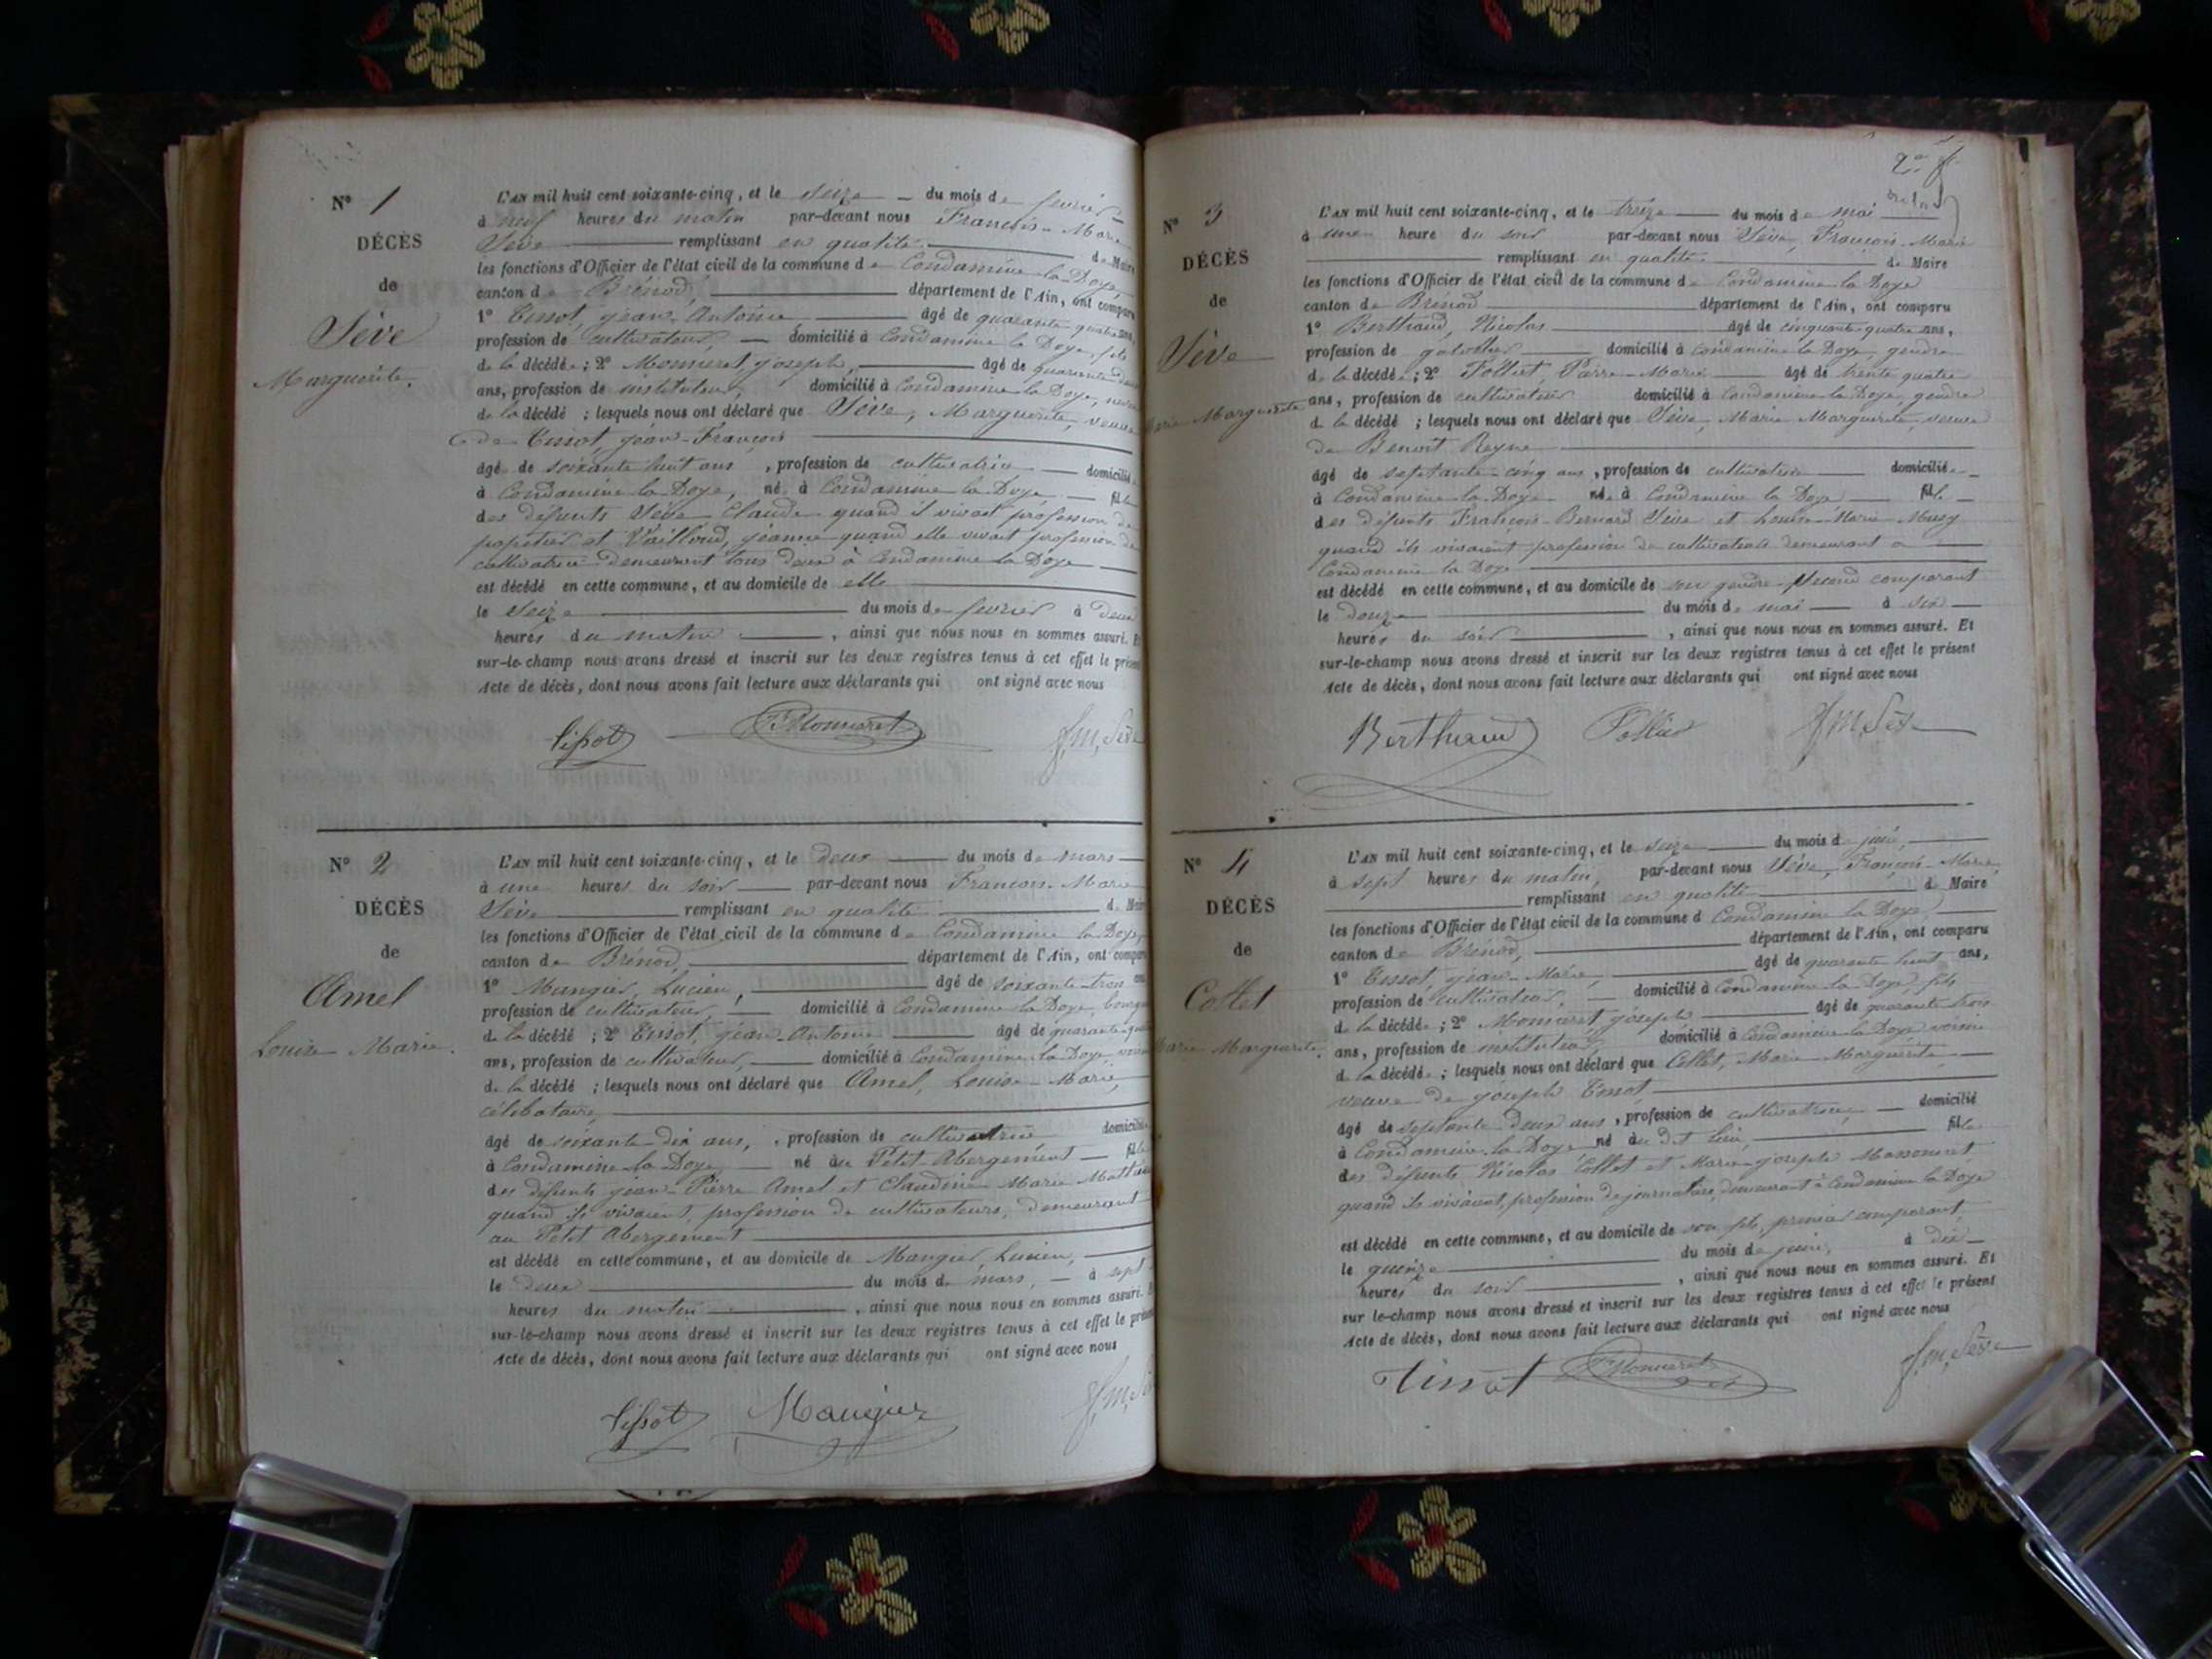 N° 1
DÉCÈS
de
Sève
Marguerite.
L'AN mil huit cent soixante-cinq, et le seize du mois de février
à neuf heures du matin par-devant nous François-Marie
Sève remplissant en qualité de Maire
les fonctions d'Officier de l'état civil de la commune de Condamine la Doye,
canton de Brénod, département de l'Ain, ont comparu
1° Tissot, jean-Antoine âgé de quarante quatre ans,
profession de cultivateur, domicilié à Condamine la Doye, fils
de la décédée ; 2° Monneret joseph, âgé de quarante
ans, profession de instituteur, domicilié à Condamine la Doye,
de la décédé ; lesquels nous ont déclaré que Sève, Marguerite, veuve
de Tissot, jean-François
âgé de soixante huit ans , profession de cultivatrice domicilié
à Condamine la Doye, né à Condamine la Doye fille
des défunts Sève Claude quand il vivait profession de
papetier et Vailloud, jeanne quand elle vivait profession de
cultivatrice demeurant tous deux à Condamine la Doye
est décédé en cette commune, et au domicile de elle
le seize du mois de février à deux
heures du matin , ainsi que nous nous en sommes assuré. Et
sur-le-champ nous avons dressé et inscrit sur les deux registres tenus à cet effet le présent
Acte de décès, dont nous avons fait lecture aux déclarants qui ont signé avec nous
Tissot Monneret f. m. Sève
N° 2
DÉCÈS
de
Amel
Louise Marie.
L'AN mil huit cent soixante-cinq, et le deux du mois de mars
à une heures du soir par-devant nous François-Marie
Sève remplissant en qualité de Maire
les fonctions d'Officier de l'état civil de la commune de Condamine la Doye,
canton de Brénod, département de l'Ain, ont comparu
1° Mangier, Lucien, âgé de soixante trois ans
profession de cultivateur, domicilié à Condamine la Doye,
de la décédé ; 2° Tissot, jean-Antoine âgé de quarante quatre
ans, profession de cultivateur, domicilié à Condamine la Doye voisin
de la décédé ; lesquels nous ont déclaré que Amel, Louise-Marie,
célibataire,
âgé de soixante dix ans, , profession de cultivatrice domicilié
à Condamine la Doye né au Petit-Abergement fille
des défunts jean-Pierre Amel et Claudine Marie
quand ils vivaient, profession de cultivateurs, demeurant
au Petit Abergement
est décédé en cette commune, et au domicile de Mangier, Lucien,
le deux du mois de mars, à sept
heures du matin , ainsi que nous nous en sommes assuré. Et
sur-le-champ nous avons dressé et inscrit sur les deux registres tenus à cet effet le présent
Acte de décès, dont nous avons fait lecture aux déclarants qui ont signé avec nous
Tissot Mangier f. m. Sève
N° 3
DÉCÈS
de
Sève
Marie Marguerite
L'AN mil huit cent soixante-cinq, et le treize du mois de mai
à une heure du soir par-devant nous Sève, François-Marie
remplissant en qualité de Maire
les fonctions d'Officier de l'état civil de la commune de Condamine la Doye
canton de Brénod département de l'Ain, ont comparu
1° Berthaud, Nicolas âgé de cinquante-quatre ans,
profession de domicilié à Condamine la Doye, gendre
de la décédé ; 2° Follliet, Pierre-Marie âgé de trente quatre
ans, profession de cultivateur domicilié à Condamine la Doye, gendre
de la décédé ; lesquels nous ont déclaré que Sève, Marie Marguerite, veuve
de Benoît Reyne
âgé de septante-cinq ans , profession de cultivatrice domicilié
à Condamine la Doye né à Condamine la Doye fille
des défunts François-Bernard Sève et Louise-Marie Musy
quand ils vivaient profession de cultivateurs demeurant à
Condamine la Doye
est décédé en cette commune, et au domicile de son gendre second comparant
le douze du mois de mai à six
heures du soir , ainsi que nous nous en sommes assuré. Et
sur-le-champ nous avons dressé et inscrit sur les deux registres tenus à cet effet le présent
Acte de décès, dont nous avons fait lecture aux déclarants qui ont signé avec nous
Berthaud Folliet f m Sève
N° 4
DÉCÈS
de
Collet
Marie Marguerite.
L'AN mil huit cent soixante-cinq, et le seize du mois de juin,
à sept heures du matin, par-devant nous Sève, François-Marie,
remplissant en qualité de Maire
les fonctions d'Officier de l'état civil de la commune d Condamine la Doye,
canton de Brénod, département de l'Ain, ont comparu
1° Tissot, jean-Marie, âgé de quarante huit ans,
profession de cultivateur, domicilié à Condamine la Doye fils
de la décédée ; 2° Monneret, joseph âgé de quarante trois
ans, profession de instituteur, domicilié à Condamine la Doye voisin
de la décédée ; lesquels nous ont déclaré que Collet, Marie-Marguerite
veuve de joseph Tissot
âgé de septante deux ans , profession de cultivatrice, domicilié
à Condamine la Doye né au dit lieu, fille
des défunts Nicolas Collet et Marie-josephe
quand ils vivaient, profession de journaliers, demeurant à Condamine la Doye
est décédé en cette commune, et au domicile de son fils, premier comparant
le quinze du mois de juin, à dix
heures du soir , ainsi que nous nous en sommes assuré. Et
sur le-champ nous avons dressé et inscrit sur les deux registres tenus à cet effet le présent
Acte de décès, dont nous avons fait lecture aux déclarants qui ont signé avec nous
Tissot Monneret f. m. Sève